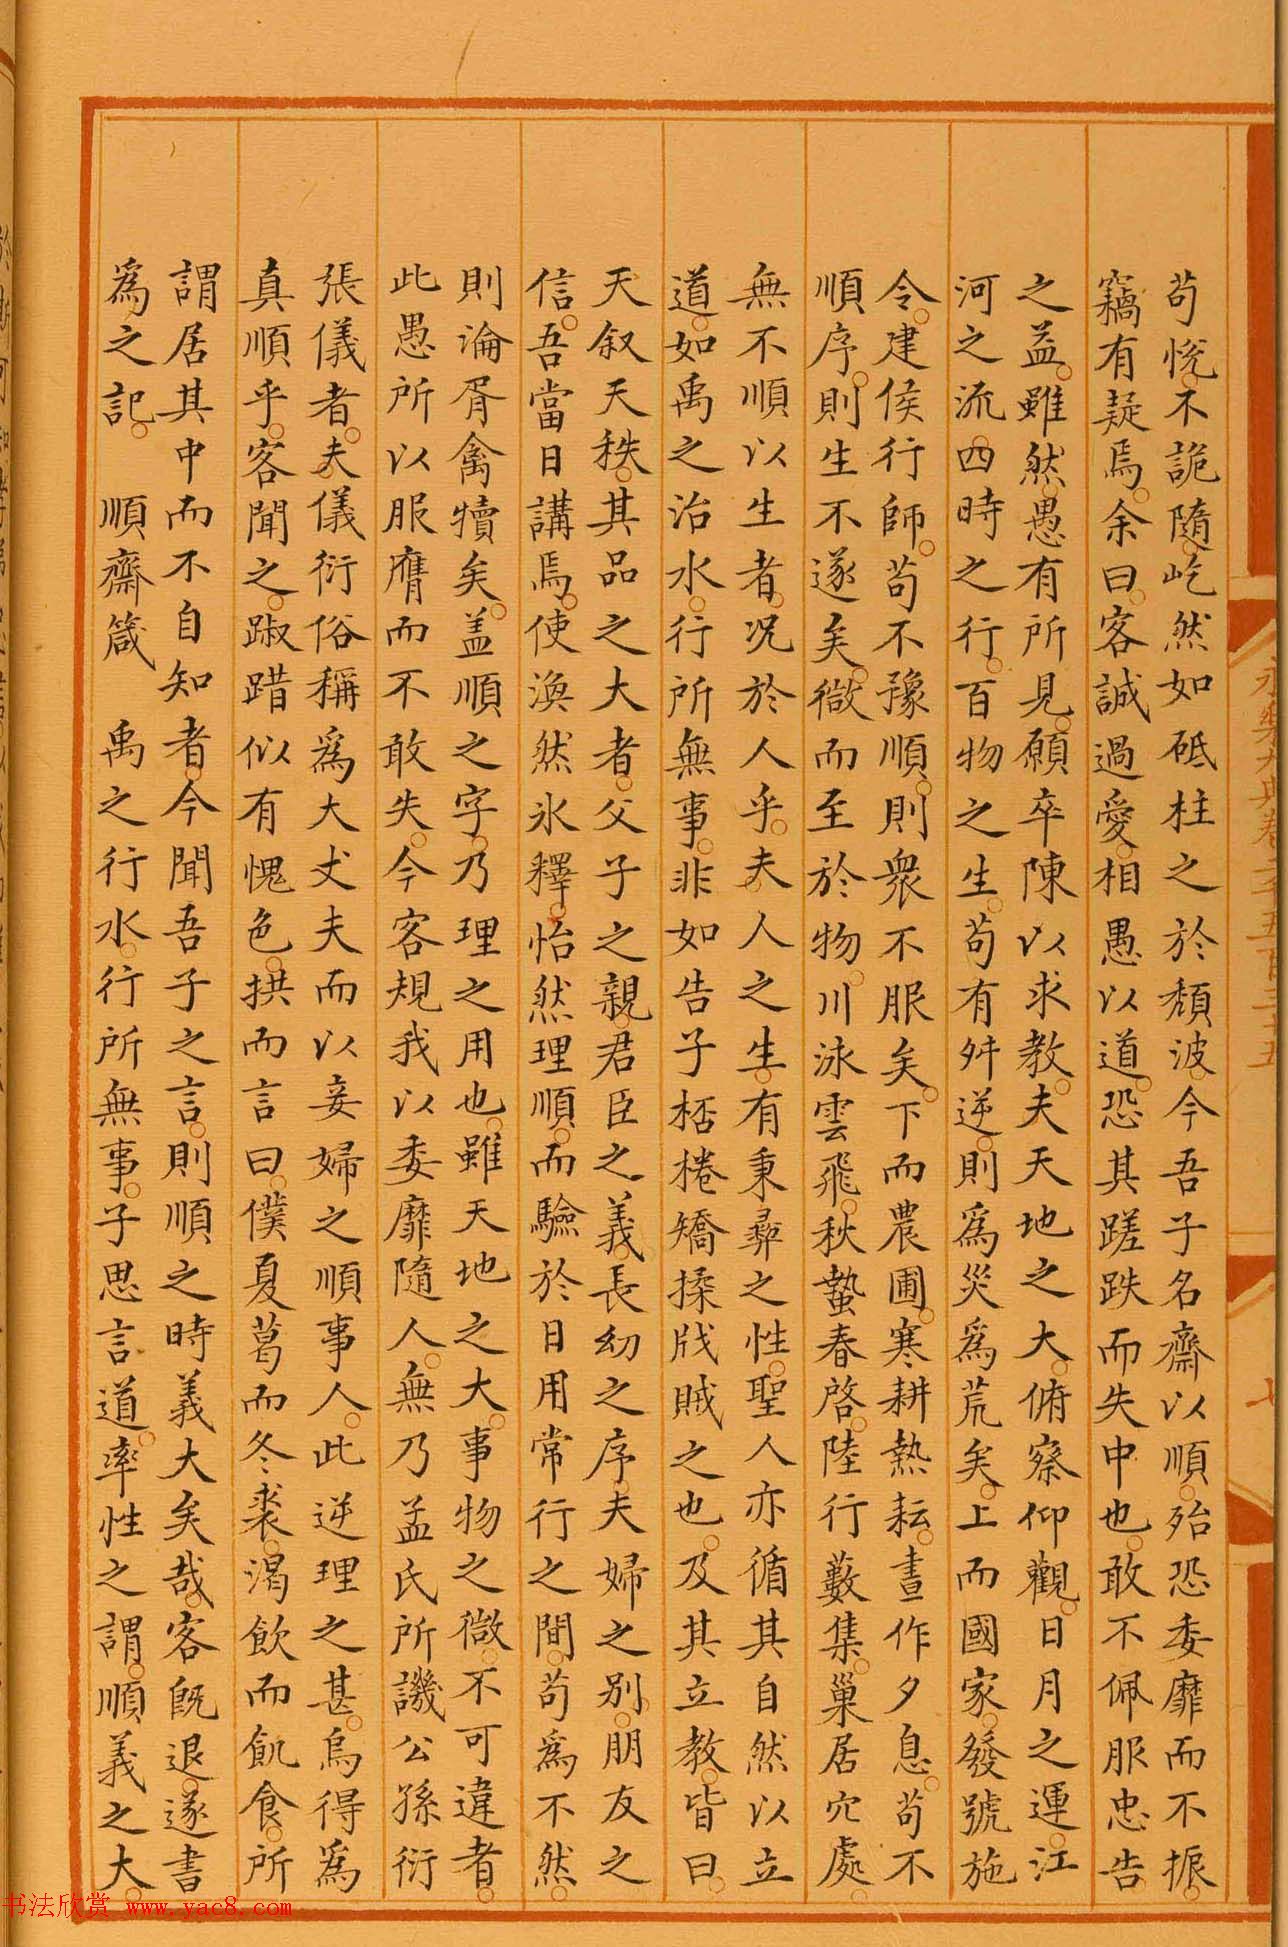 苟悅。不詭隨。屹然如砥柱之於頹波。今吾子名齋以順。殆恐委靡而不振。
竊有疑焉。余曰。客誠過愛。相愚以道。恐其蹉跌而失中也。敢不佩服忠告
之益。雖然。愚有所見。願卒陳以求教。夫天地之大。俯察仰觀。日月之運。江
河之流。四時之行。百物之生。苟有舛逆。則為災為荒矣。上而國家。發號施
令。建侯行師。苟不豫順。則衆不服矣。下而農圃。寒耕熱耘。晝作夕息。苟不
順序。則生不遂矣。微而至於物。川泳雲飛。秋蟄春啓。陸行藪集。巢居穴處。
無不順以生者。况於人乎。夫人之生。有秉彝之性。聖人亦循其自然以立
道。如禹之治水。行所無事。非如告子桮棬矯揉戕賊之也。及其立教。皆曰。
天叙天秩。其品之大者。父子之親。君臣之義。長幼之序。夫婦之别。朋友之
信。吾當日講焉。使渙然氷釋。怡然理順。而驗於日用常行之間。苟為不然。
則淪胥禽犢矣。盖順之字。乃理之用也。雖天地之大。事物之微。不可違者。
此愚所以服膺而不敢失。今客規我以委靡隨人。無乃孟氏所譏公孫衍
張儀者。夫儀衍俗稱為大丈夫而以妾婦之順事人。此逆理之甚。烏得為
真順乎。客聞之。踧踖似有愧色。拱而言曰。僕夏葛而冬裘。渴飲而飢食。所
謂居其中而不自知者。今聞吾子之言。則順之時義大矣哉。客既退。遂書
為之記。 順齋箴 禹之行水。行所無事。子思言道。率性之謂。順義之大。
永樂大典卷二千五百三十五
七
书法欣赏 www.yac8.com